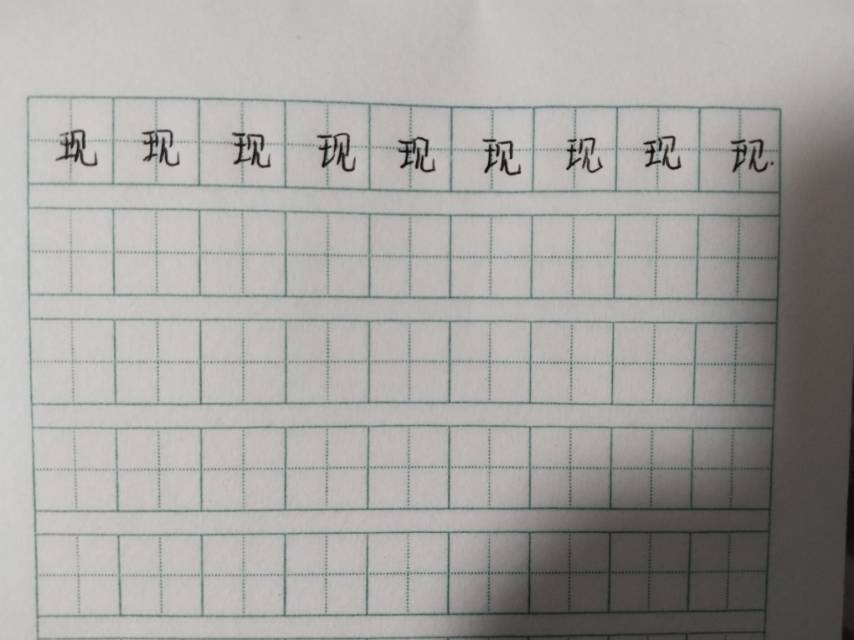 现 现 现 现 现 现 现 现 现.